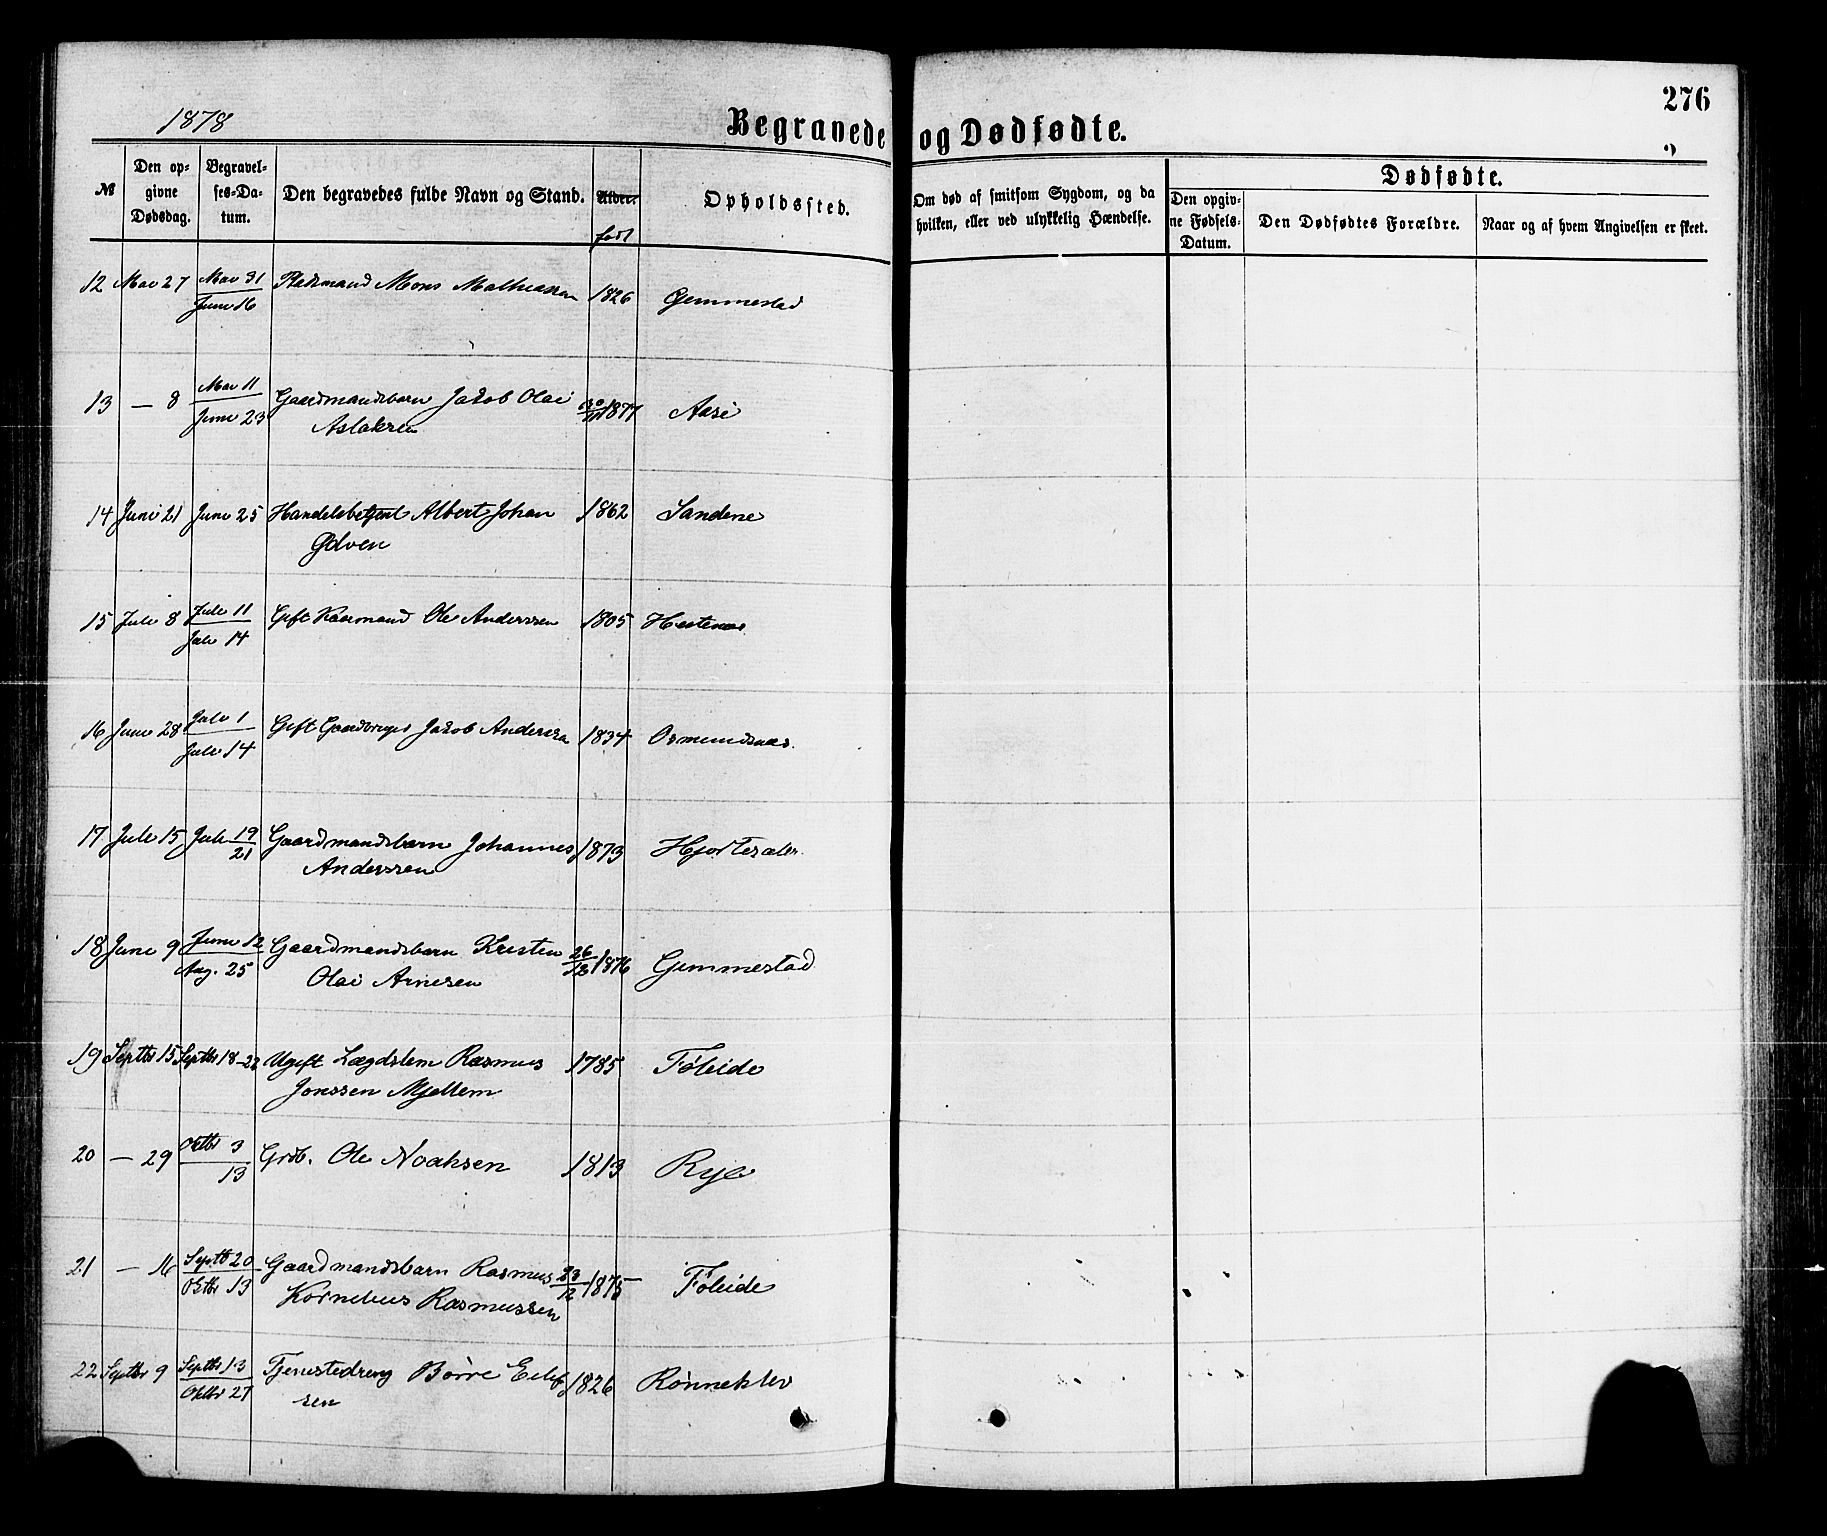 276
1878
Begravede og Dødfødte.
№
Den opgivne Dødsdag.
Begravelses-Datum.
Den begravedes fulde Navn og Stand.
Alder.
født
Opholdssted.
Om død af smitsom Sygdom, og da hvilken, eller ved ulykkelig Hændelse.
Dødfødte.
Den opgivne Fødsels-Datum.
Den Dødfødtes Forældre.
Naar og af hvem Angivelsen er skeet.
12 Mai 27 Mai 31 Pladsmand Mons Mathiassen 1826 Gemmestad
Juni 16
13 — 8 Mai 11 Gaardmandsbarn Jakob Olai 1877 Aase
Juni 23 Aslaksen
14 Juni 21 Juni 25 Handelsbetjent Albert Johan 1862 Sandene
Ødven
15 Juli 8 Juli 11 Gift Kaarmand Ole Anderssen 1805 Hestenæs
Juli 14
16 Juni 28 Juli 1 Gift Gaardbruger Jakob Anderssen 1834 Osmundnæs.
Juli 14
17 Juli 15 Juli 19 Gaardmandsbarn Johannes 1873 Hjortesæter
21 Anderssen
18 Juni 9 Juni 12 Gaardmandsbarn Kristen 26/12 1876 Gemmestad
Aug. 25 Olai Arnesen
19 Septbr 15 Septbr 18-22 Ugift Lægdslem Rasmus 1785 Føleide
Jonssen Mjellem
20 — 29 Oktbr 3 Grdb. Ole Noahsen 1813 Rye
13
21 — 16 Septb 20 Gaardmandsbarn Rasmus 23/12 1875 Føleide
Oktbr 13 Kornelius Rasmussen
22 Septbr 9 Septbr 13 Tjenestedreng Børre Eilif 1826 Rønneklev
Oktbr 27 sen